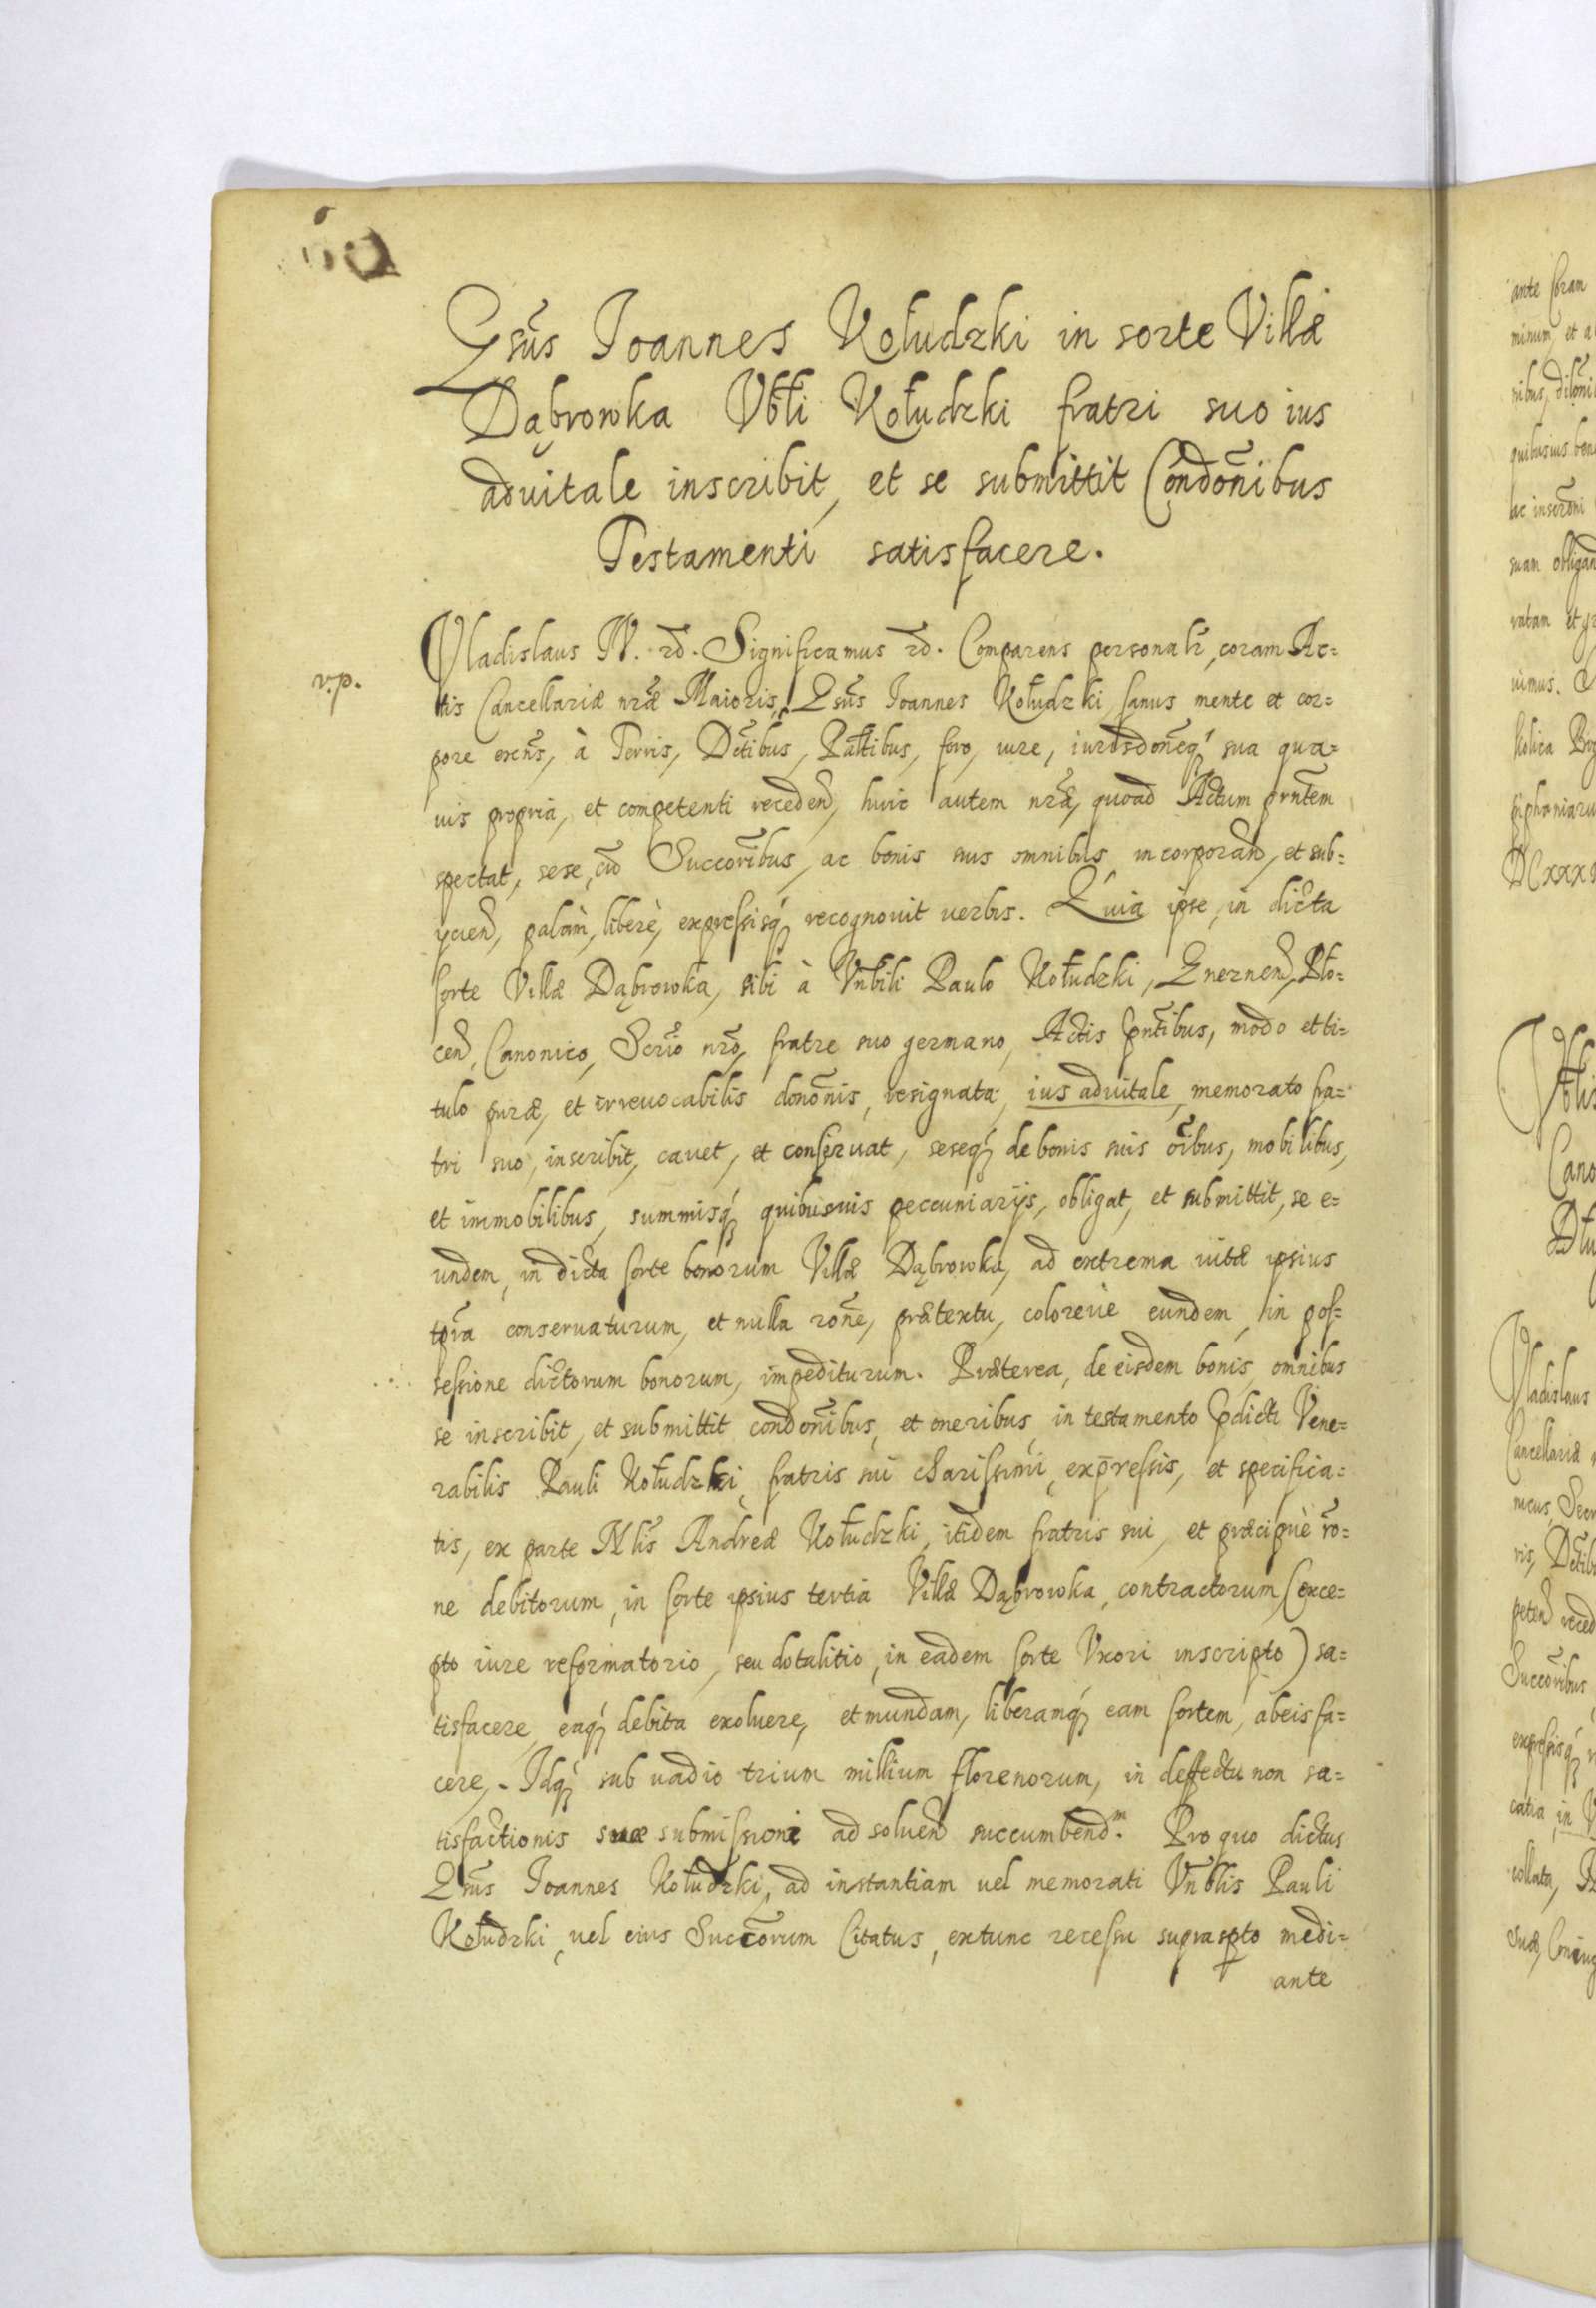 Gsus Joannes Kołudzki in sorte Villæ
Dąbrowka Vbli Kołudzki fratri suo ius
advitale inscribit, et se submittit Condonibus
Testamenti satisfacere.
Vladislaus IV. rd. Significamus rd. Comparens personalr, coram Ac=
v.p.
tis Cancellariæ nræ Maioris, Gsus Joannes Kołudzki, sanus mente et cor=
pore exens, à Terris, Dctibus, Paltibus, foro, iure, iurisdoneq sua qua=
uis propria, et competenti recedend, huic autem nræ, quoad Actum prntem
spectat, sese, cu Succoribus, ac bonis suis omnibus incorporand, et sub=
yciend, palàm, liberè, expressisq recognouit uerbis. Quia ipse, in dicta
sorte Villæ Dąbrowka, sibi à Vnbili Paulo Kołudzki, Gneznen, Plo=
cen, Canonico, Scrio nro, fratre suo germano, Actis pntibus, modo et ti=
tulo puræ, et irreuocabilis dononis, resignata, ius aduitale, memorato fra=
tri suo, inscribit, cauet, et conseruat, seseq de bonis suis oibus, mobilibus,
et immobilibus, summisq quibusuis peccuniarijs, obligat, et submittit, se e=
undem, in dicta sorte bonorum Villæ Dąbrowka, ad extrema uitæ ipsius
tpra conseruaturum, et nulla rone, prætextu, coloreue eundem, in pos=
sessione dictorum bonorum, impediturum. Præterea, de eisdem bonis omnibus
se inscribit, et submittit condonibus, et oneribus, in testamento pdicti Vene=
rabilis Pauli Kołudzki, fratris sui charissimi, expressis, et specifica=
tis, ex parte Mlis Andreæ Kołudzki, itidem fratris sui, et præcipuè ro=
ne debitorum, in sorte ipsius tertia Villæ Dąbrowka, contractorum, (exce=
pto iure reformatorio, seu dotalitio, in eadem sorte Vxori inscripto) sa=
tisfacere, eaq debita exoluere, et mundam, liberamq eam sortem, ab eis fa=
cere. Idq sub uadio trium millium florenorum, in deffectu non sa=
tisfactionis suæ submissioni ad soluend succumbend.m Pro quo dictus
Gsus Joannes Kołudzki, ad instantiam uel memorati Vnblis Pauli
Kołudzki, uel eius Succorum Citatus, extunc recessu suprascpto medi=
ante